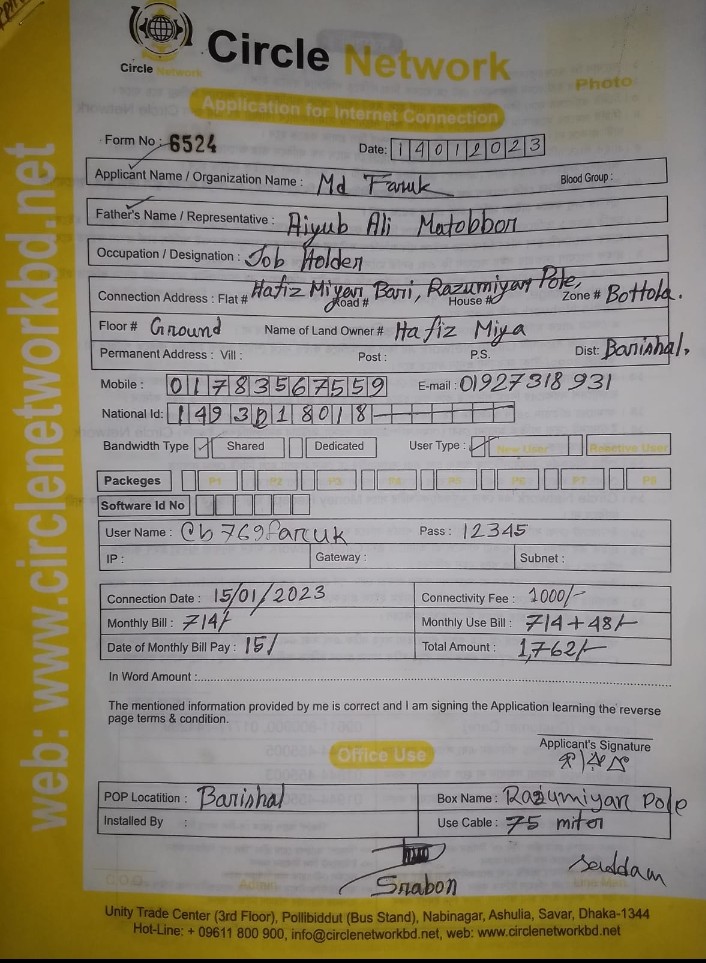 Circle Network
Circle Network
Photo
Application for Internet Connection
Form No : 6524
Date: 14012023
Applicant Name / Organization Name : Md Faruk Blood Group :
Father's Name / Representative : Aiyub Ali Matobbor
Occupation / Designation : Job Holder
Connection Address : Flat # Hafiz Miyar Bari, Road # Razumiyar Pole, House # Zone # Bottola.
Floor # Ground Name of Land Owner # Hafiz Miya
Permanent Address : Vill : Post : P.S. Dist: Barishal,
Mobile : 01783567559 E-mail : 01927318931
National Id:
Bandwidth Type Shared Dedicated User Type : New User Reactive User
Packeges P1 P2 P3 P4 P5 P6 P7 P8
Software Id No
User Name : @b769faruk Pass : 12345
IP : Gateway : Subnet :
Connection Date : 15/01/2023 Connectivity Fee : 1000/-
Monthly Bill : 714/- Monthly Use Bill : 714+48/-
Date of Monthly Bill Pay : 15/ Total Amount : 1,762/-
In Word Amount :
The mentioned information provided by me is correct and I am signing the Application learning the reverse
page terms & condition.
Applicant's Signature
Office Use
POP Locatition : Barishal Box Name : Razumiyar Pole
Installed By : Use Cable : 75 miter
Srabon
Seuddam
C.O.O. Admin
Unity Trade Center (3rd Floor), Pollibiddut (Bus Stand), Nabinagar, Ashulia, Savar, Dhaka-1344
Hot-Line: + 09611 800 900, info@circlenetworkbd.net, web: www.circlenetworkbd.net
web: www.circlenetworkbd.net